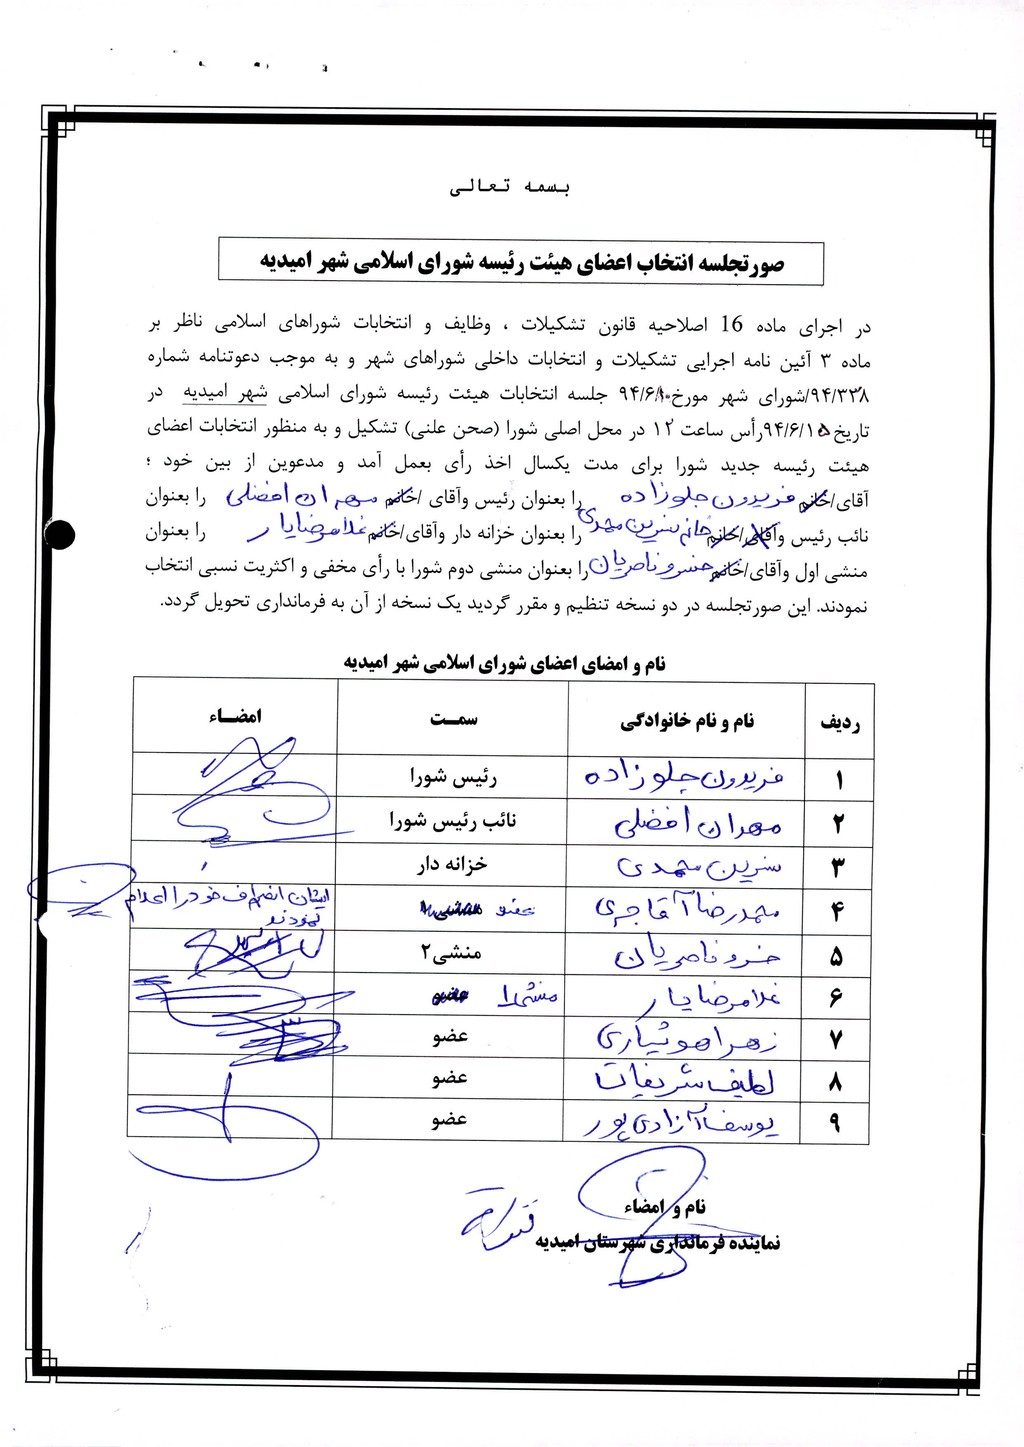 بسمه تعالی
صورتجلسه انتخاب اعضای هیئت رئیسه شورای اسلامی شهر امیدیه
در اجرای ماده 16 اصلاحیه قانون تشکیلات ، وظایف و انتخابات شوراهای اسلامی ناظر بر
ماده ۳ آئین نامه اجرایی تشکیلات و انتخابات داخلی شوراهای شهر و به موجب دعوتنامه شماره
۹۴/۳۳۸/شورای شهر مورخ ۹۴/۶/۱۰ جلسه انتخابات هیئت رئیسه شورای اسلامی شهر امیدیه در
تاریخ ۹۴/۶/۱۵ رأس ساعت ۱۲ در محل اصلی شورا (صحن علنی) تشکیل و به منظور انتخابات اعضای
هیئت رئیسه جدید شورا برای مدت یکسال اخذ رأی بعمل آمد و مدعوین از بین خود ؛
آقای/خانم فریدون جلوزاده را بعنوان رئیس وآقای /خانم مهران افضلی را بعنوان
نائب رئیس وآقای/خانم خانم نسرین محمدی را بعنوان خزانه دار وآقای/خانم غلامرضا یار را بعنوان
منشی اول وآقای/خانم خسرو ناصریان را بعنوان منشی دوم شورا با رأی مخفی و اکثریت نسبی انتخاب
نمودند. این صورتجلسه در دو نسخه تنظیم و مقرر گردید یک نسخه از آن به فرمانداری تحویل گردد.
نام و امضای اعضای شورای اسلامی شهر امیدیه
ردیف نام و نام خانوادگی سمت امضاء
۱ فریدون جلوزاده رئیس شورا
۲ مهران افضلی نائب رئیس شورا
۳ نسرین محمدی خزانه دار
۴ محمدرضا آقاجری منشی ۱ عضو ایشان انصراف خود را اعلام
نمودند
۵ خسرو ناصریان منشی۲
۶ غلامرضا یار عضو منشی ۱
۷ زهرا هوشیاری عضو
۸ لطیف شریفات عضو
۹ یوسف آزادی پور عضو
نام و امضاء
نماینده فرمانداری شهرستان امیدیه